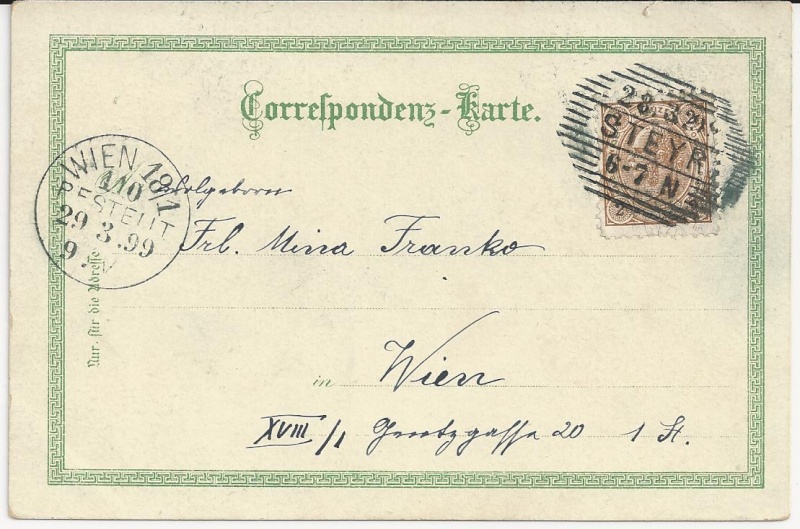 Correspondenz-Karte.
28.3.
STEYR
6-7 N
WIEN 18/1
110
BESTELLT
29.3.99
9.V
Wolgeboren
Frl. Mina Franko
Nur für die Adresse
in Wien
XVIII/1 Gentzgasse 20 1 St.